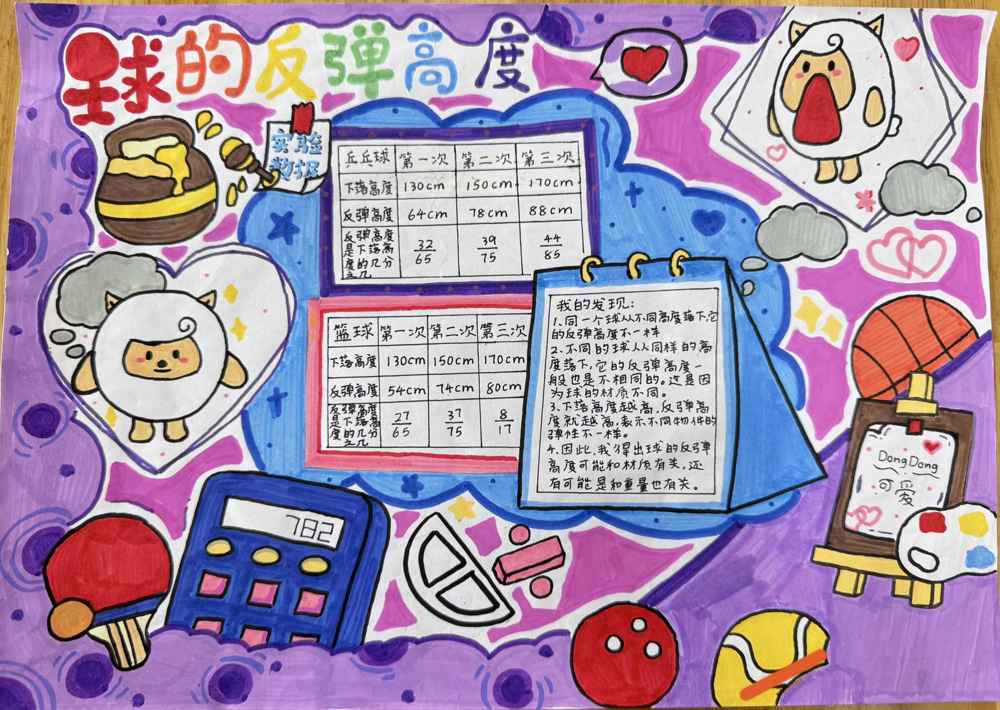 球的反弹高度
实验
数据
乒乓球 第一次 第二次 第三次
下落高度 130cm 150cm 170cm
反弹高度 64cm 78cm 88cm
反弹高度是下落高度的几分之几 32/65 39/75 44/85
篮球 第一次 第二次 第三次
下落高度 130cm 150cm 170cm
反弹高度 54cm 74cm 80cm
反弹高度是下落高度的几分之几 27/65 37/75 8/17
我的发现:
1.同一个球从不同高度落下,它
的反弹高度不一样
2.不同的球从从同样的高
度落下,它的反弹高度一
般也是不相同的。这是因
为球的材质不同。
3.下落高度越高,反弹高
度就越高,表示不同物件的
弹性不一样。
4.因此,我得出球的反弹
高度可能和材质有关,还
有可能是和重量也有关。
DongDong
可爱
782